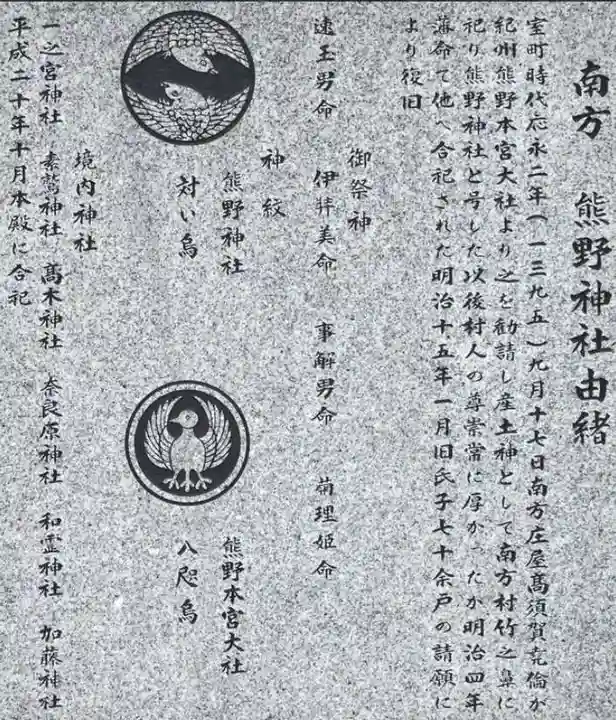 南方 熊野神社由緒
室町時代応永二年(一三九五)九月十七日南方庄屋髙須賀尭倫が
紀州熊野本宮大社より之を勧請し産土神として南方村竹之鼻に
祀り熊野神社と号した以後村人の尊崇常に厚かったか明治四年
藩命て他へ合祀された明治十五年一月旧氏子七十余戸の請願に
より復旧
御祭神
速玉男命 伊弉美命 事解男命 菊理姫命
神紋
熊野神社
対い烏
熊野本宮大社
八咫烏
境内神社
一之宮神社 素鵞神社 髙木神社 奈良原神社 和霊神社 加藤神社
平成二十年十月本殿に合祀